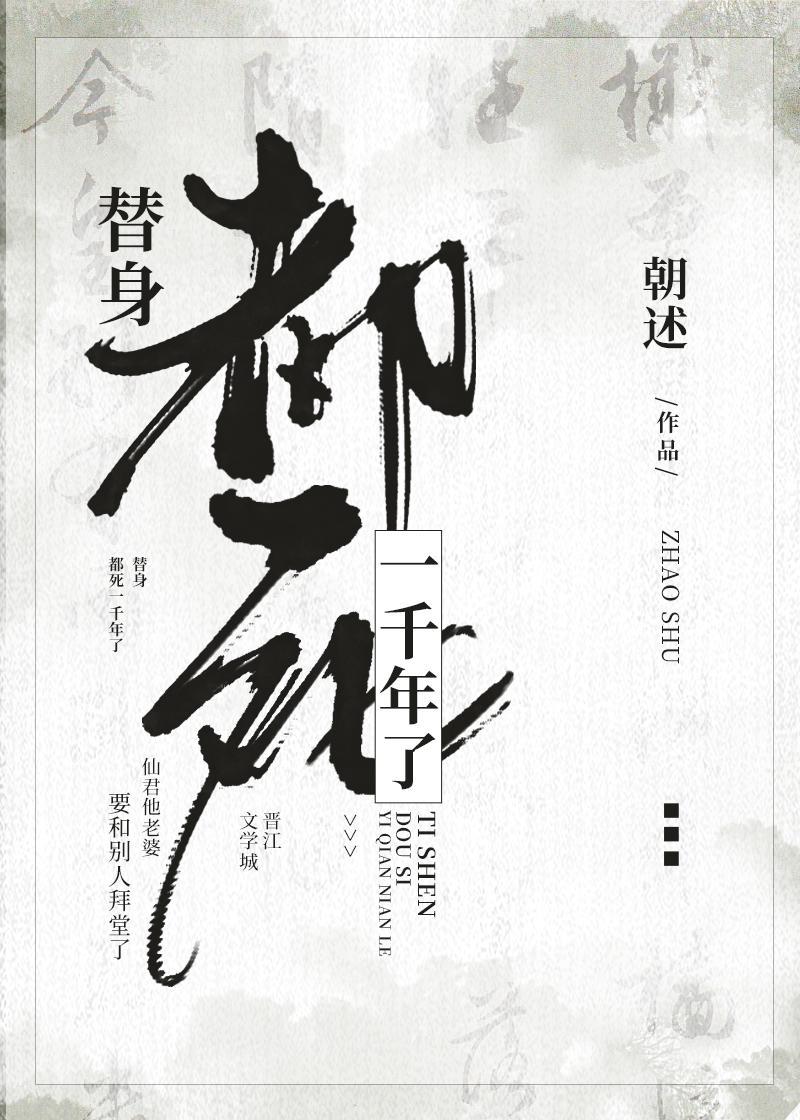 替身
都死
一千年了
朝述
/作品/
ZHAO SHU
替身
都死一千年了
仙君他老婆
要和别人拜堂了
晋江
文学城
>>>
TI SHEN
DOU SI
YI QIAN NIAN LE
今
落